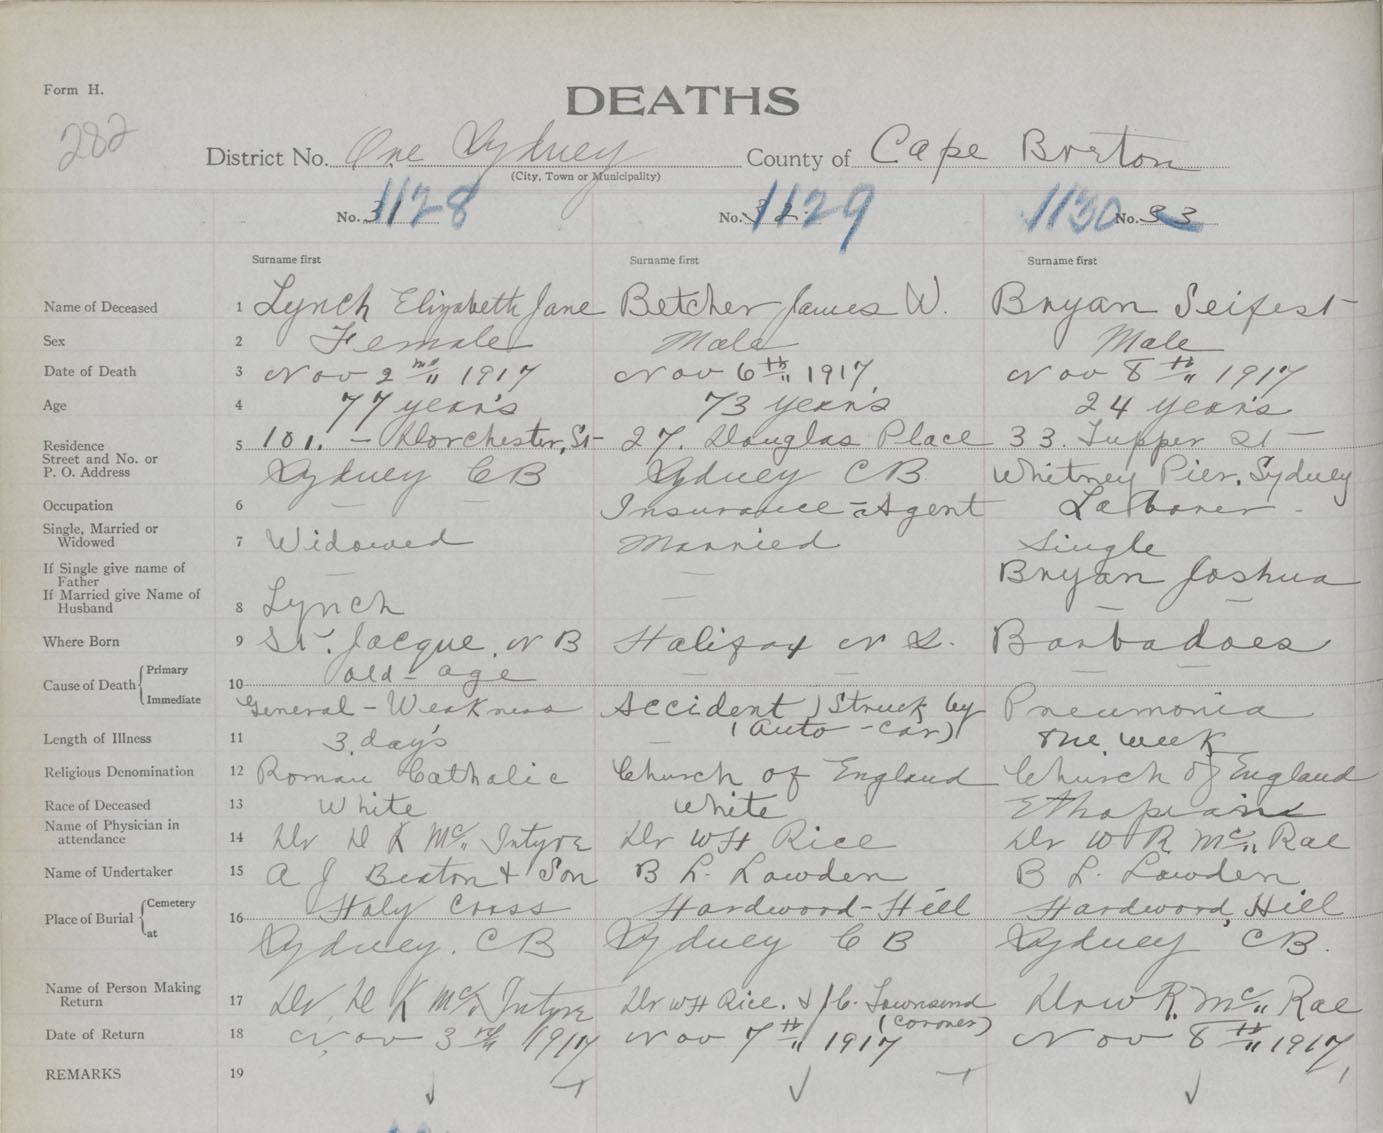 Form H.
DEATHS
282
District No. One Sydney County of Cape Breton
(City, Town or Municipality)
1128 1129 1130
No. 31 No. 32 No. 33
Surname first Surname first Surname first
Name of Deceased 1 Lynch Elizabeth Jane Betcher James W. Bryan Seifest
Sex 2 Female Male Male
Date of Death 3 Nov 2nd 1917 Nov 6th 1917 Nov 8th 1917
Age 4 77 year's 73 year's 24 year's
Residence
Street and No. or 5 101. - Dorchester, St- 27. Douglas Place 33. Tupper St-
P. O. Address Sydney CB Sydney CB Whitney Pier, Sydney
Occupation 6 — Insurance = Agent Laborer -
Single, Married or
Widowed 7 Widowed Married Single
If Single give name of
Father — — Bryan Joshua
If Married give Name of
Husband 8 Lynch — — —
Where Born 9 St. Jacque, N B Halifax N S. Barbadoes
Cause of Death Primary 10 old - age — — — —
Immediate General - Weakness Accident (Struck by Pneumonia
(Auto-car)
Length of Illness 11 3 day's — One week
Religious Denomination 12 Roman Catholic Church of England Church of England
Race of Deceased 13 White White Ethopian
Name of Physician in
attendance 14 Dr D K McIntyre Dr W H Rice Dr W R. McRae
Name of Undertaker 15 A J Beaton & Son B L. Lowden B L. Lowden
Place of Burial Cemetery 16 Holy Cross Hardwood-Hill Hardwood, Hill
at Sydney. CB Sydney CB Sydney CB.
Name of Person Making
Return 17 Dr, D K McIntyre Dr W H Rice. & J C. Townsend Dr W R. McRae
(Coroner)
Date of Return 18 Nov 3rd 1917 Nov 7th 1917 Nov 8th 1917
REMARKS 19